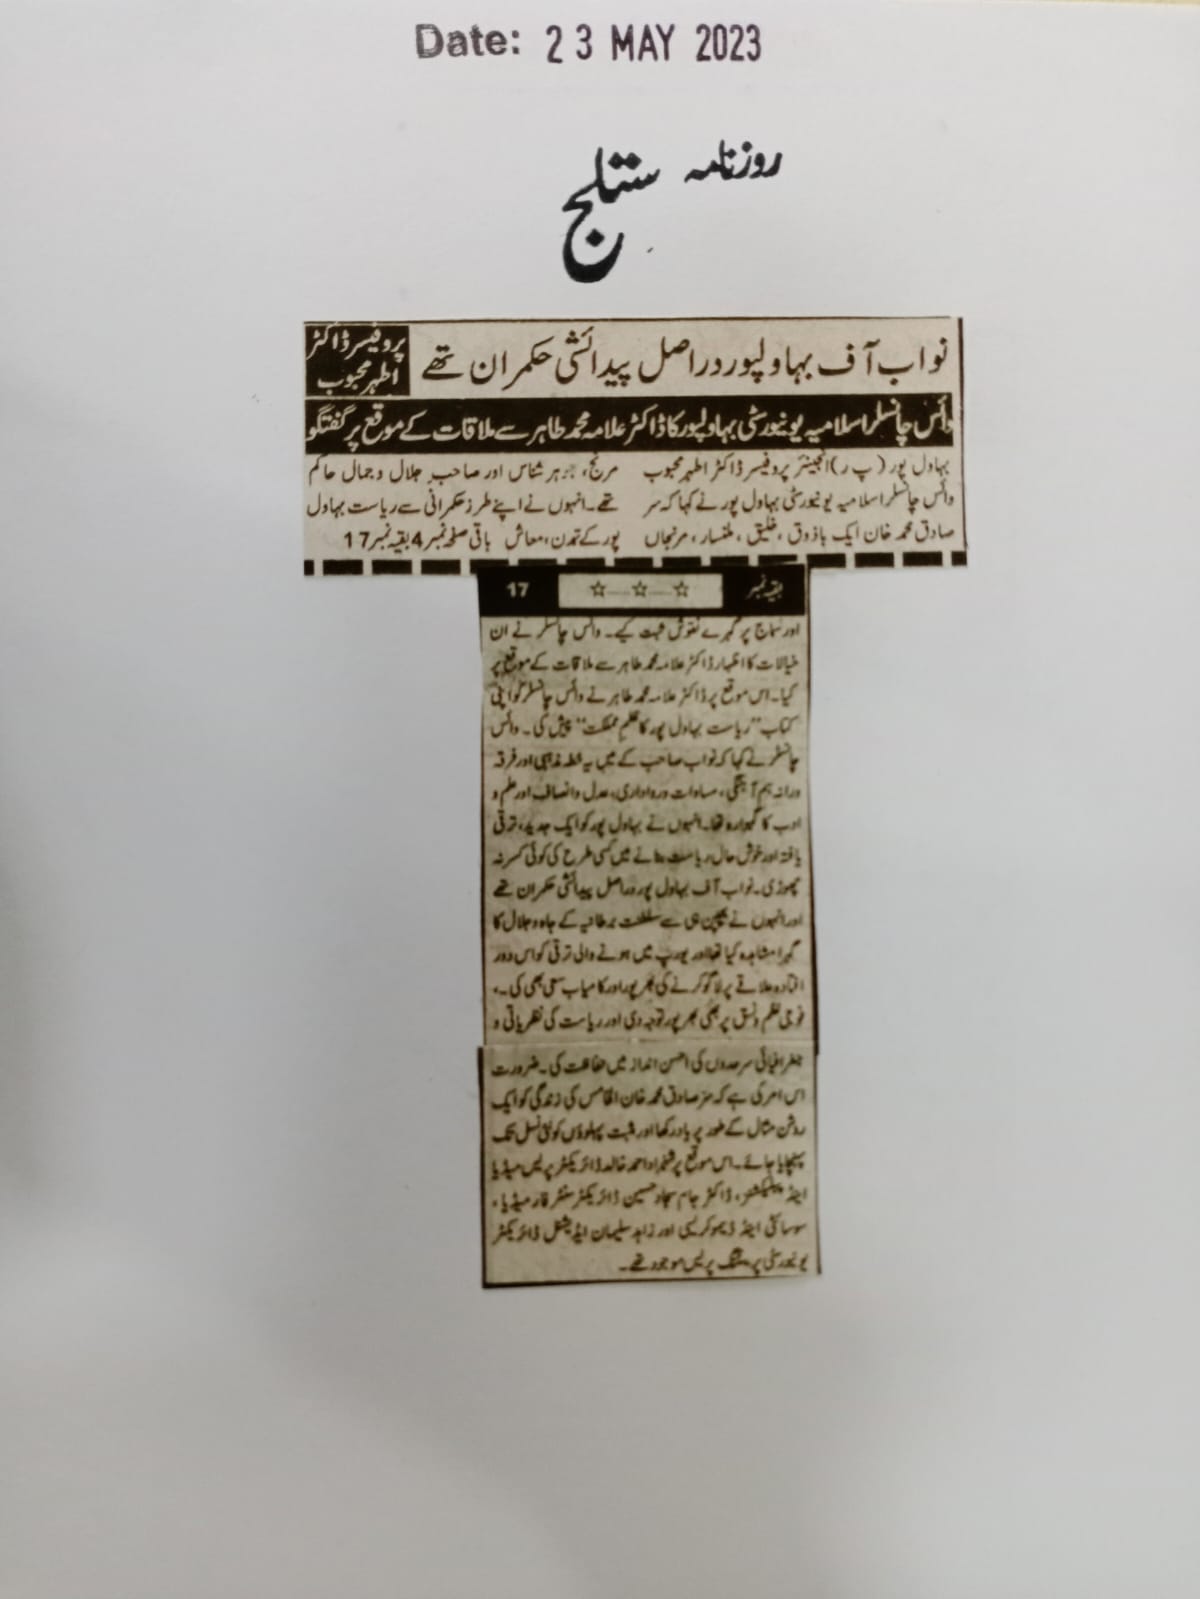 Date: 23 MAY 2023
روزنامہ ستلج
نواب آف بہاولپور دراصل پیدائشی حکمران تھے
پروفیسر ڈاکٹر
اطہر محبوب
وائس چانسلر اسلامیہ یونیورسٹی بہاولپور کا ڈاکٹر علامہ محمد طاہر سے ملاقات کے موقع پر گفتگو
بہاول پور (پ ر) انجینئر پروفیسر ڈاکٹر اطہر محبوب
وائس چانسلر اسلامیہ یونیورسٹی بہاول پور نے کہا کہ سر
صادق محمد خان ایک باذوق، خلیق، ملنسار، مرنجاں
مرنج، جوہر شناس اور صاحب جلال و جمال حاکم
تھے۔ انہوں نے اپنے طرز حکمرانی سے ریاست بہاول
پور کے تمدن، معاش باقی صفحہ نمبر 4 بقیہ نمبر 17
بقیہ نمبر 17
اور سماج پر گہرے نقوش ثبت کیے۔ وائس چانسلر نے ان
خیالات کا اظہار ڈاکٹر علامہ محمد طاہر سے ملاقات کے موقع پر
کیا۔ اس موقع پر ڈاکٹر علامہ محمد طاہر نے وائس چانسلر کو اپنی
کتاب "ریاست بہاول پور کا نظم مملکت" پیش کی۔ وائس
چانسلر نے کہا کہ نواب صاحب کے میں یہ خطہ مذہبی اور فرقہ
ورانہ ہم آہنگی، مساوات و رواداری، عدل و انصاف اور علم و
ادب کا گہوارہ تھا۔ انہوں نے بہاول پور کو ایک جدید، ترقی
یافتہ اور خوش حال ریاست بنانے میں کسی طرح کی کوئی کسر نہ
چھوڑی۔ نواب آف بہاول پور دراصل پیدائشی حکمران تھے
اور انہوں نے بچپن ہی سے سلطنت برطانیہ کے جاہ و جلال کا
گہرا مشاہدہ کیا تھا اور یورپ میں ہونے والی ترقی کو اس دور
افتادہ علاقے پر لاگو کرنے کی بھرپور اور کامیاب سعی بھی کی۔،
فوجی نظم و نسق پر بھی بھرپور توجہ دی اور ریاست کی نظریاتی و
جغرافیائی سرحدوں کی احسن انداز میں حفاظت کی۔ ضرورت
اس امر کی ہے کہ سر صادق محمد خان الخامس کی زندگی کو ایک
روشن مثال کے طور پر یاد رکھا اور مثبت پہلوؤں کو نئی نسل تک
پہنچایا جائے۔ اس موقع پر شہزاد احمد خالد ڈائریکٹر پریس میڈیا
اینڈ پبلیکشنز، ڈاکٹر جام سجاد حسین ڈائریکٹر سنٹر فار میڈیا،
سوسائٹی اینڈ ڈیموکریسی اور زاہد سلیمان ایڈیشنل ڈائریکٹر
یونیورسٹی پرنٹنگ پریس موجود تھے۔